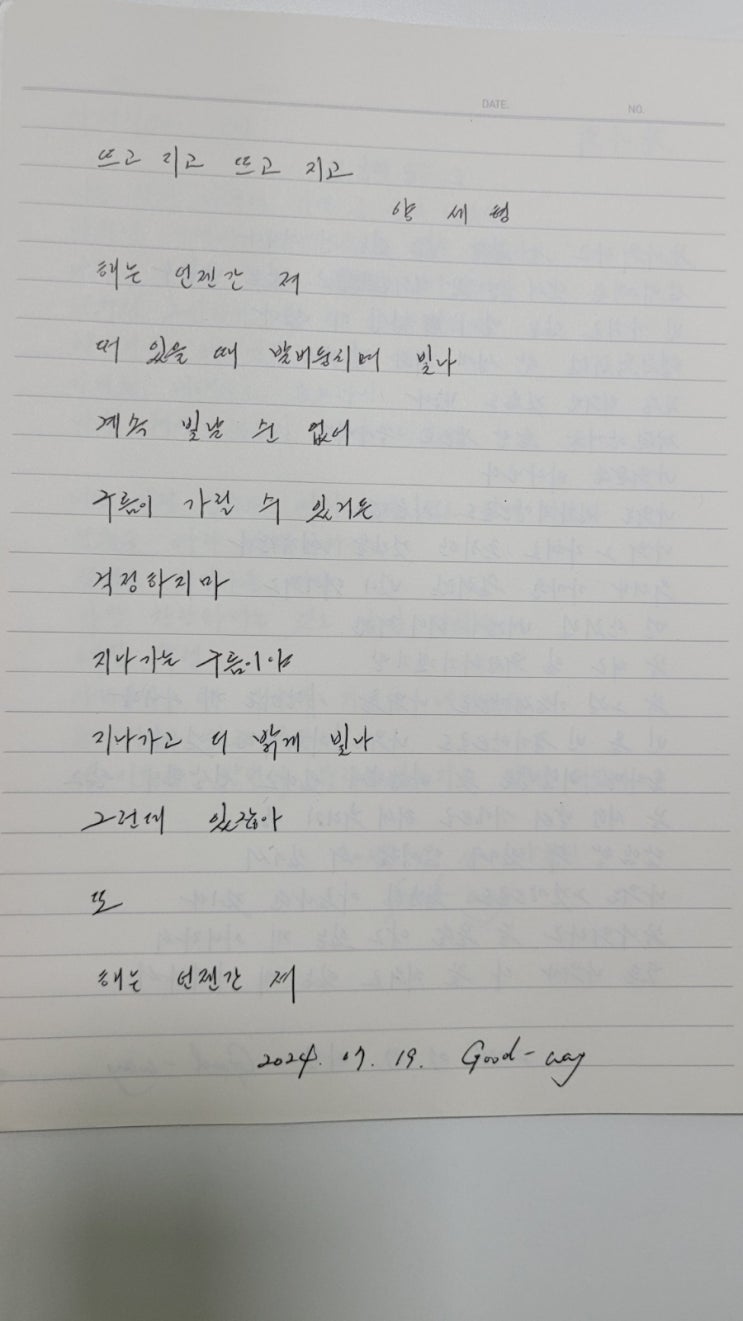 DATE. NO.
뜨고 지고 뜨고 지고
양 세 형
해는 언젠간 져
떠 있을 때 발버둥치며 빛나
계속 빛날 순 없어
구름이 가릴 수 있거든
걱정하지마
지나가는 구름이야
지나가고 더 밝게 빛나
그런데 있잖아
또
해는 언젠간 져
2024. 07. 19. Good-way